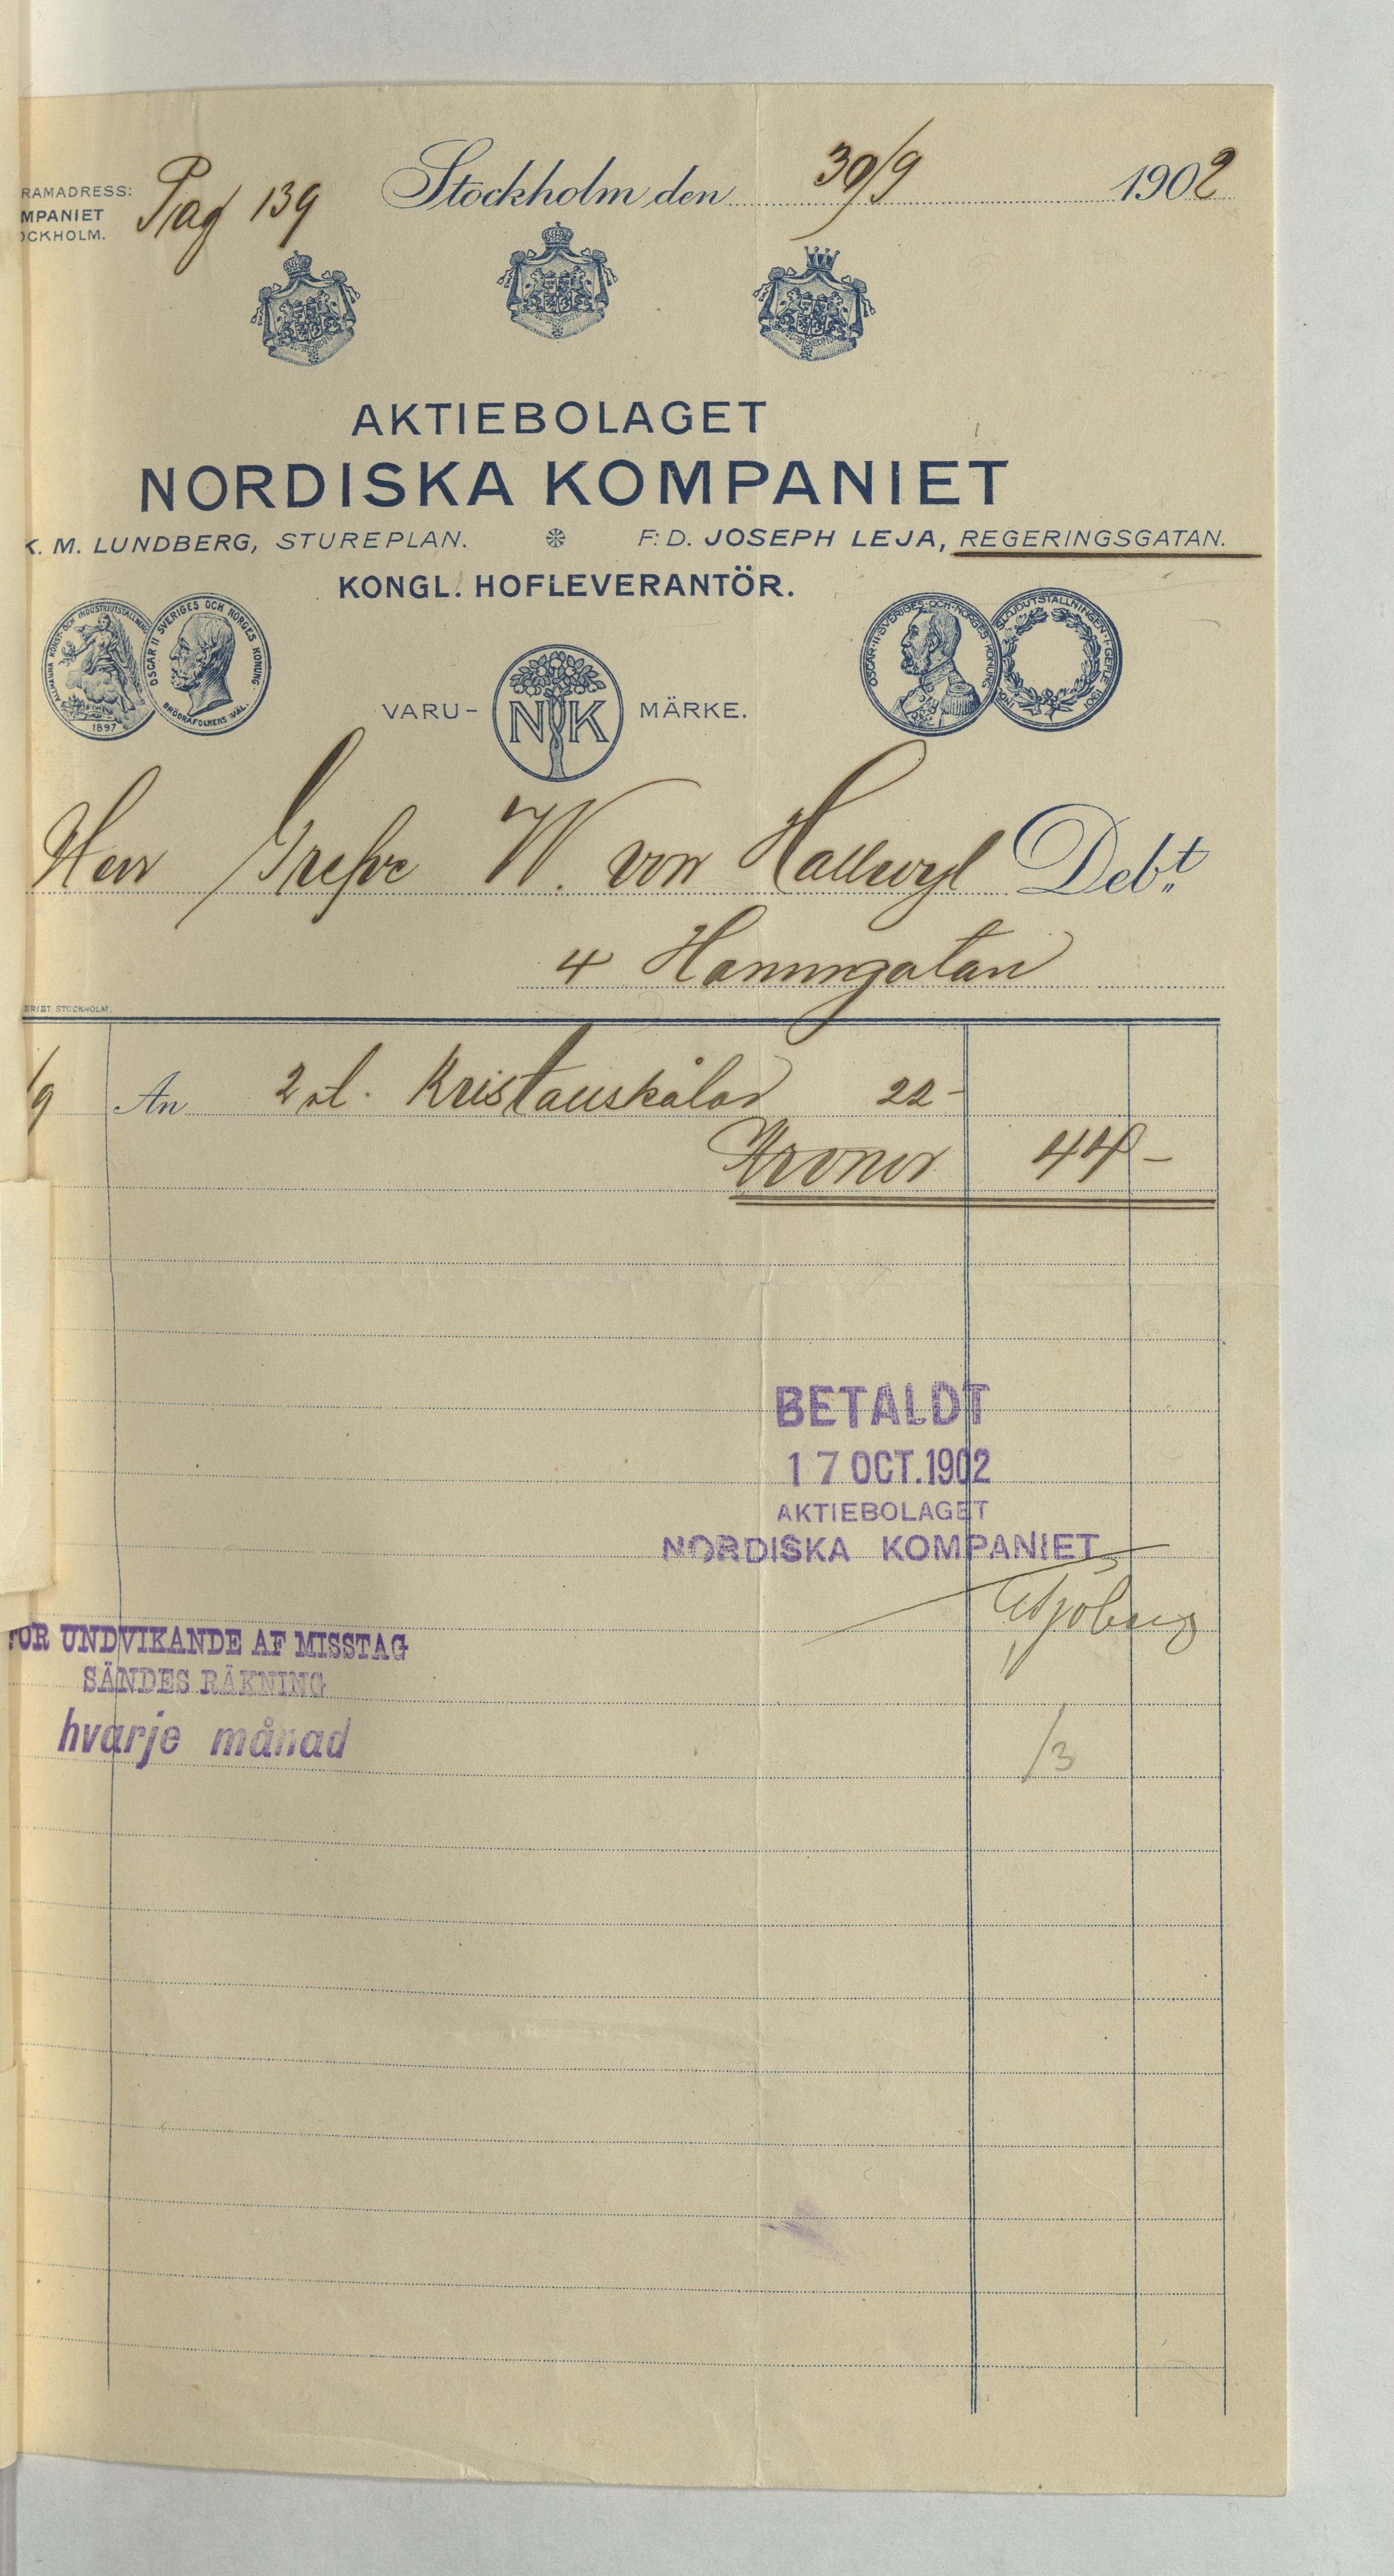 RAMADRESS:
MPANIET
OCKHOLM.
Pag 139
Stockholm den 30/9 1902
AKTIEBOLAGET
NORDISKA KOMPANIET
K. M. LUNDBERG, STUREPLAN. F. D. JOSEPH LEJA, REGERINGSGATAN.
KONGL. HOFLEVERANTÖR.
ALLMÄNNA KONST- OCH INDUSTRIUTSTÄLLNING 1897
OSCAR II SVERIGES OCH NORGES KONUNG. BRÖDRAFOLKENS VÄL.
VARU- NK MÄRKE.
OSCAR II SVERIGES OCH NORGES KONUNG
SLÖJDUTSTÄLLNINGEN I GEFLE 1901
Herr Grefve W. von Hallwyl Debt
4 Hamngatan
ERIET. STOCKHOLM.
/9 An 2 st. Kristallskålar 22-
Kronor 44-
BETALDT
17 OCT. 1902
AKTIEBOLAGET
NORDISKA KOMPANIET
Sjöberg
FÖR UNDVIKANDE AF MISSTAG
SÄNDES RÄKNING
hvarje månad
/3